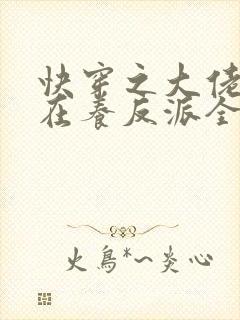 快穿之大佬
在养反派全
火鳥*~炎心